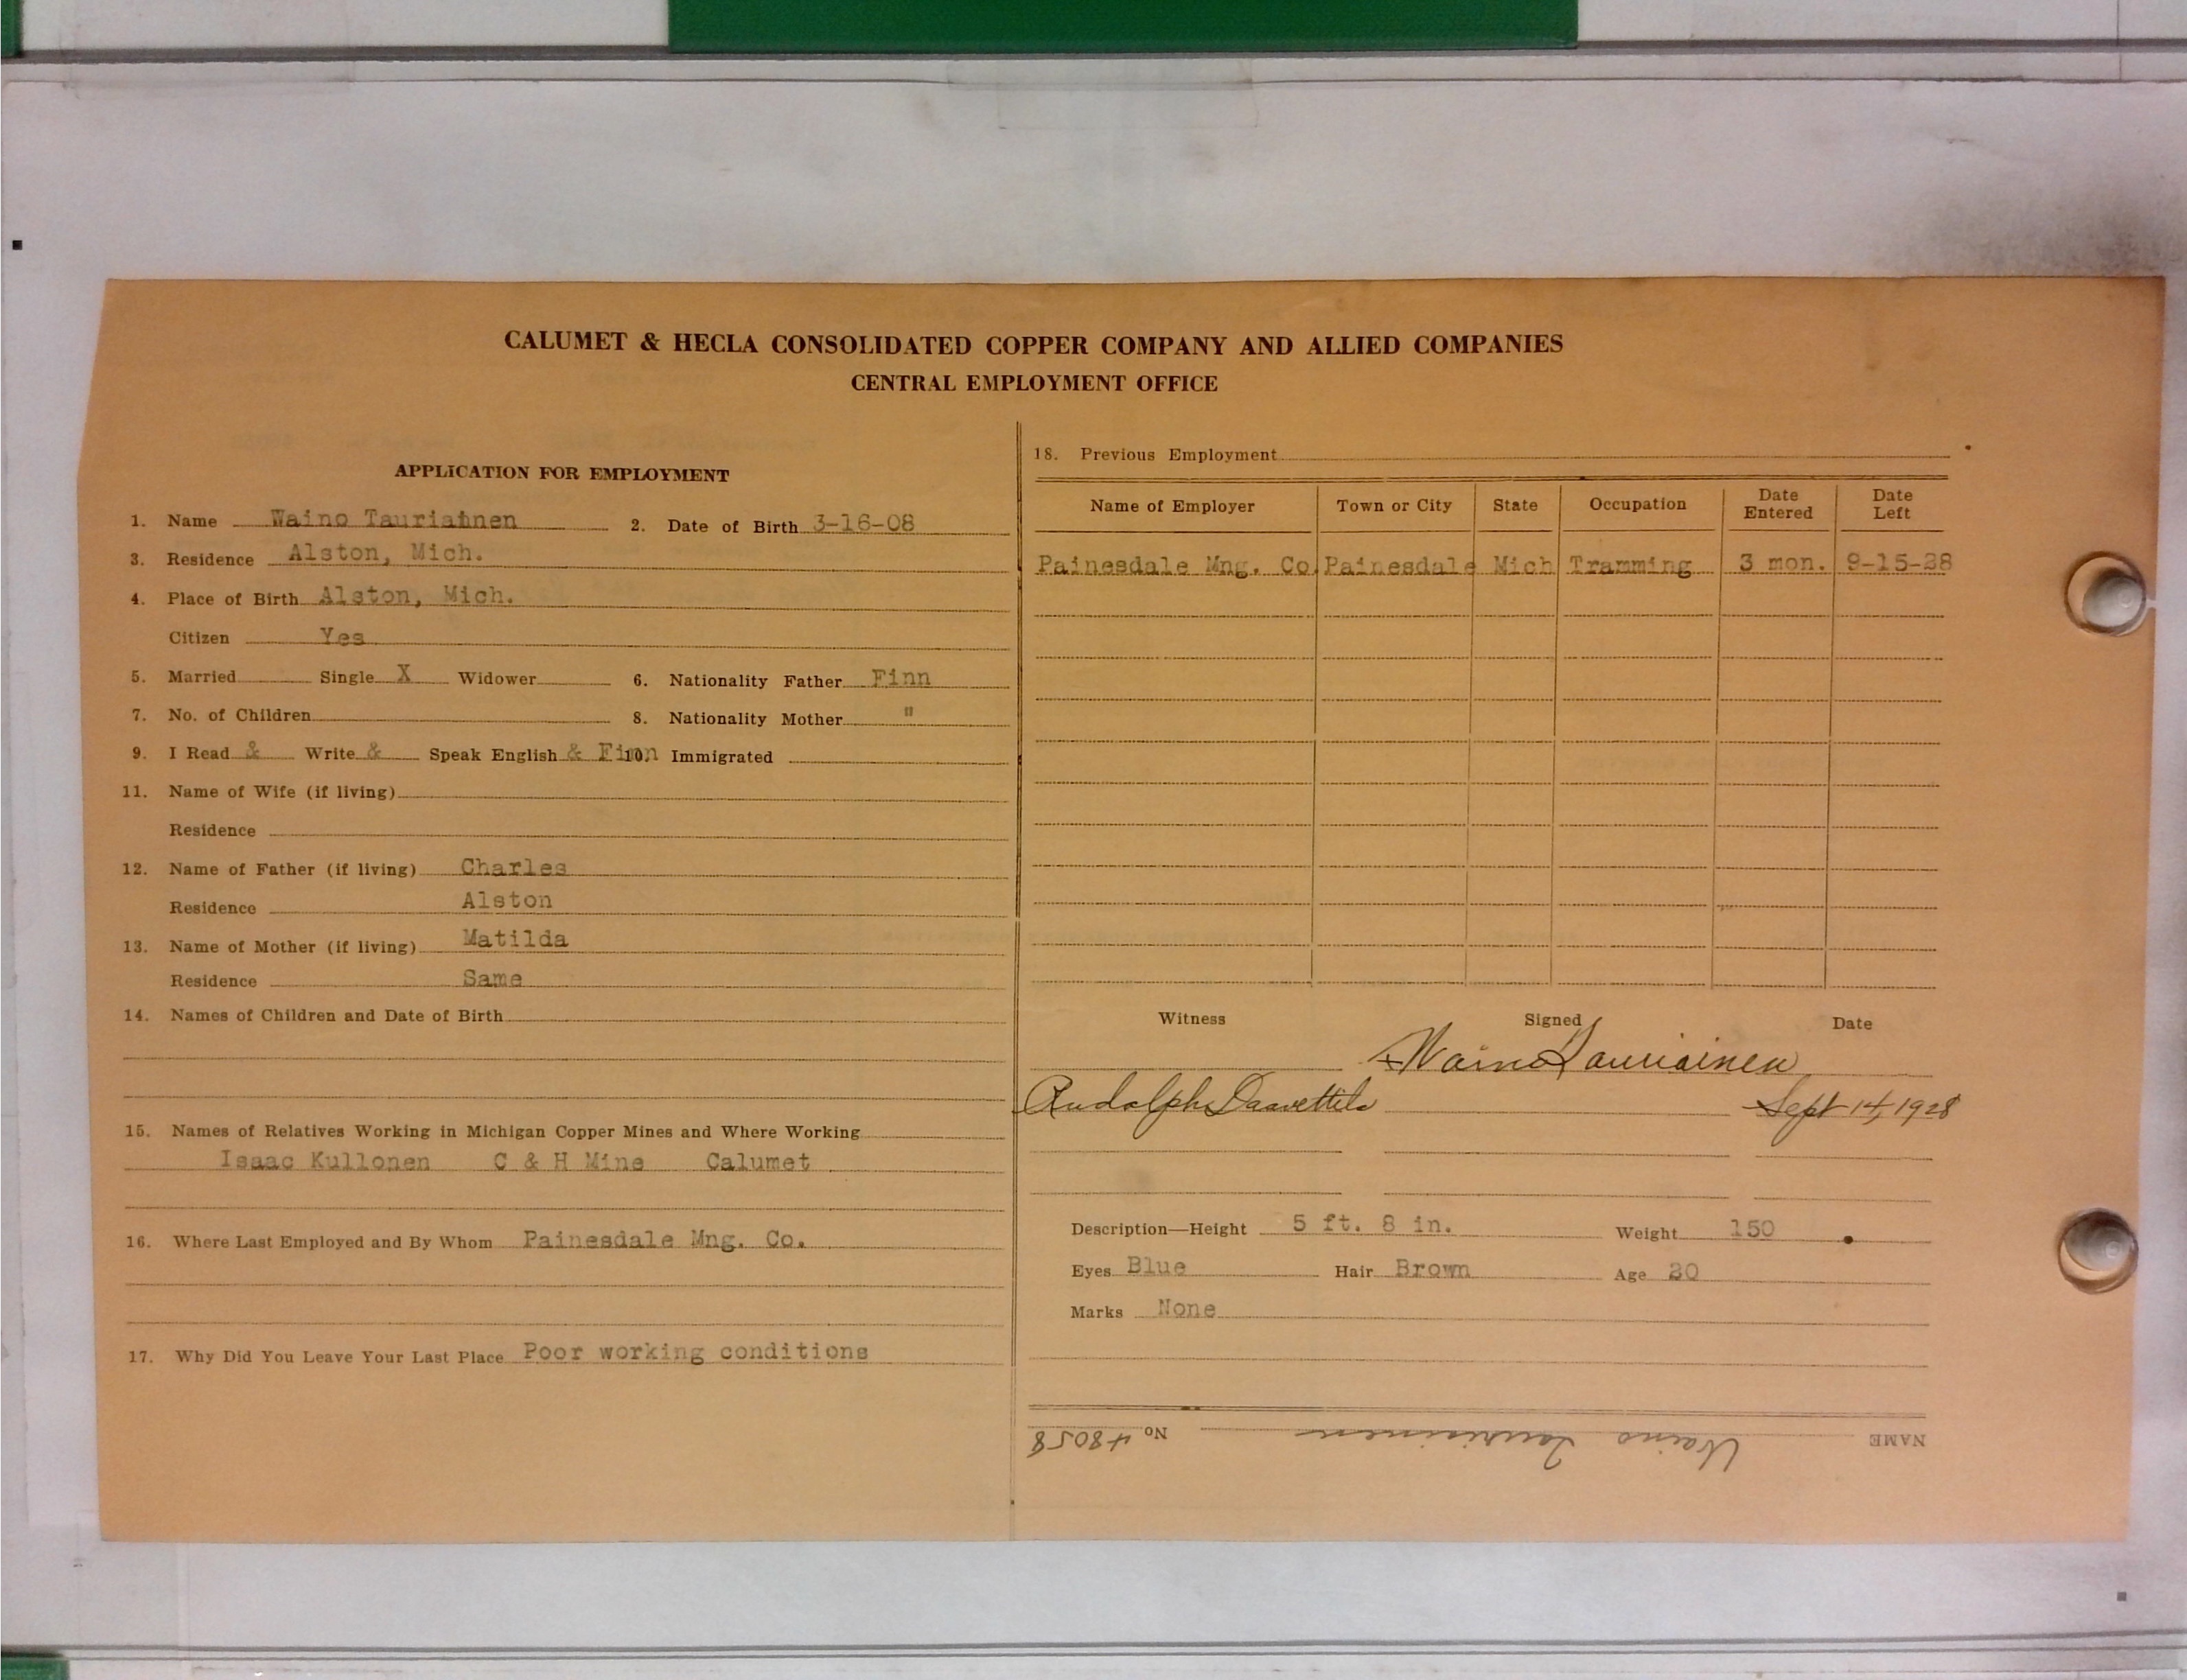 CALUMET & HECLA CONSOLIDATED COPPER COMPANY AND ALLIED COMPANIES
CENTRAL EMPLOYMENT OFFICE
APPLICATION FOR EMPLOYMENT
1. Name Waino Tauriainen 2. Date of Birth 3-16-08
3. Residence Alston, Mich.
4. Place of Birth Alston, Mich.
Citizen Yes
5. Married Single X Widower 6. Nationality Father Finn
7. No. of Children 8. Nationality Mother "
9. I Read & Write & Speak English & Finn 10. Immigrated
11. Name of Wife (if living)
Residence
12. Name of Father (if living) Charles
Residence Alston
13. Name of Mother (if living) Matilda
Residence Same
14. Names of Children and Date of Birth
15. Names of Relatives Working in Michigan Copper Mines and Where Working
Isaac Kullonen C & H Mine Calumet
16. Where Last Employed and By Whom Painesdale Mng. Co.
17. Why Did You Leave Your Last Place Poor working conditions
18. Previous Employment
Name of Employer Town or City State Occupation Date Entered Date Left
Painesdale Mng. Co. Painesdale Mich Tramming 3 mon. 9-15-28
Witness Signed Date
Waino Tauriainen
Rudolph Sept 14, 1928
Description—Height 5 ft. 8 in. Weight 150
Eyes Blue Hair Brown Age 20
Marks None
NAME Waino Tauriainen No. 48058